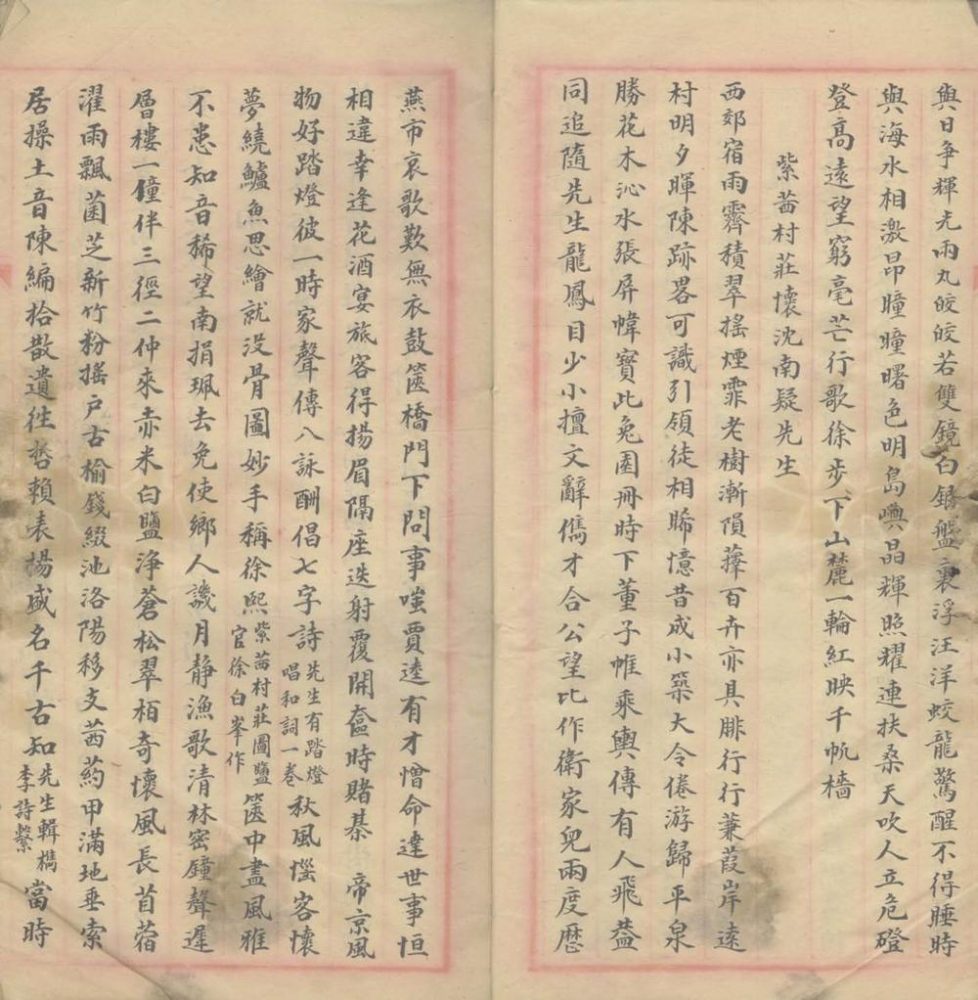 與日争輝光兩丸皎皎若雙鏡白銀盤裏浮汪洋蛟龍驚醒不得睡時
與海水相激昂曈曈曙色明島嶼晶輝照耀連扶桑天吹人立危磴
登高遠望窮毫芒行歌徐步下山麓一輪紅映千帆檣
紫茜村莊懷沈南疑先生
西郊宿雨霽積翠搖煙霏老樹漸隕蘀百卉亦具腓行行蒹葭岸遠
村明夕暉陳跡畧可識引領徒相睎憶昔成小築大令倦游歸平泉
勝花木沁水張屏幃寶此兔園冊時下董子帷乘輿傳有人飛蓋
同追隨先生龍鳳目少小擅文辭儁才合公望比作衛家兒兩度歷
燕市哀歌歎無衣鼓篋橋門下問事嗤賈逵有才憎命達世事恒
相違幸逢花酒宴旅客得揚眉隔座迭射覆開奩時賭棊 帝京風
物好踏燈彼一時家聲傳八詠酬倡七字詩先生有踏燈唱和詞一卷秋風惱客懷
夢繞鱸魚思繪就没骨圖妙手稱徐熙紫茜村莊圖鹽官徐白峯作篋中盡風雅
不患知音稀望南捐珮去免使鄉人譏月靜漁歌清林密鐘聲遲
層樓一僮伴三徑二仲來赤米白鹽淨蒼松翠栢奇懷風長苜蓿
濯雨飄菌芝新竹粉搖户古榆錢綴池洛陽移支茜葯甲滿地垂索
居操土音陳編拾散遺徃哲賴表揚咸名千古知先生輯檇李詩繫當時